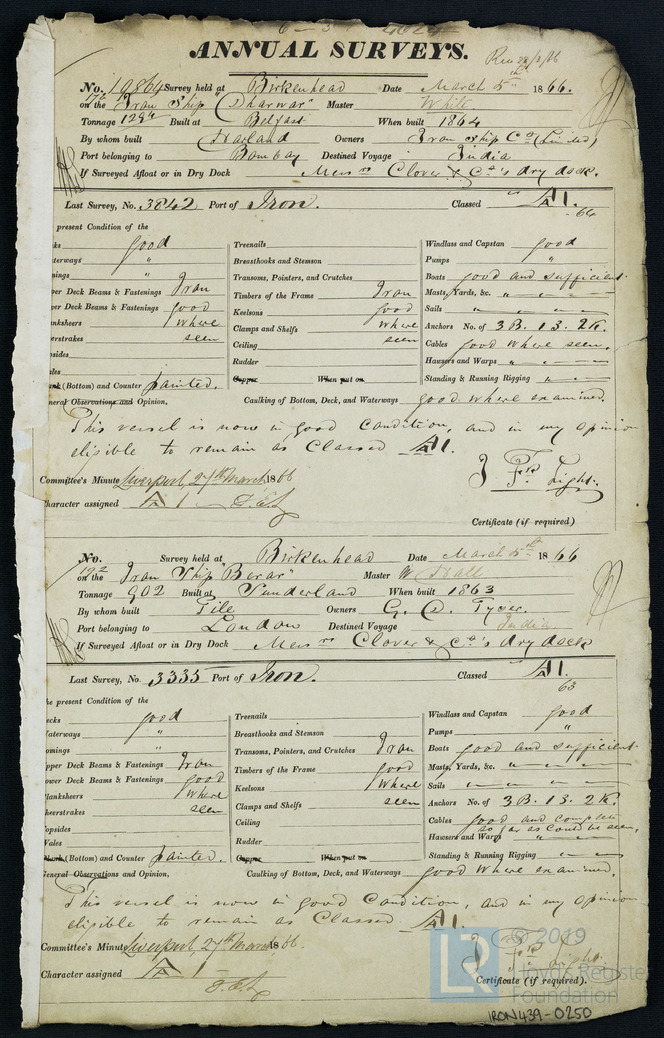 ANNUAL SURVEYS.
No. 19864 Survey held at Birkenhead Date March 5th 1866.
on the Iron Ship "Dharwar" Master White
Tonnage 1294 Built at Belfast When built 1864
By whom built Harland Owners Iron Ship Co (Limited)
Port belonging to Bombay Destined Voyage India
If Surveyed Afloat or in Dry Dock Messrs Clover & Co's dry dock.
Last Survey, No. 3842 Port of Iron. Classed A1.
64
present Condition of the
ks good Treenails Windlass and Capstan good
terways " Breasthooks and Stemson Pumps "
mings " Transoms, Pointers, and Crutches Boats good and sufficient
per Deck Beams & Fastenings Iron Timbers of the Frame Iron Masts, Yards, &c. "
er Deck Beams & Fastenings good Keelsons good Sails "
anksheers where Clamps and Shelfs where Anchors No. of 3B. 1S. 2K.
erstrakes seen Ceiling seen Cables good where seen.
psides Rudder Hawsers and Warps "
ales Copper When put on Standing & Running Rigging "
(Bottom) and Counter painted.
neral Observations and Opinion, Caulking of Bottom, Deck, and Waterways good where examined.
This vessel is now in good Condition, and in my Opinion
eligible to remain as Classed A1.
Committee's Minute Liverpool, 27th March 1866
Character assigned A 1
Light.
Certificate (if required)
No. Survey held at Birkenhead Date March 5th 1866
on the Iron Ship "Berar" Master W Hall
Tonnage 902 Built at Sunderland When built 1863
By whom built Pile Owners G. D. Tyser.
Port belonging to London Destined Voyage India
If Surveyed Afloat or in Dry Dock Messrs Clover & Co's dry dock
Last Survey, No. 3335 Port of Iron. Classed A1.
63
he present Condition of the
ecks good Treenails Windlass and Capstan good
Waterways " Breasthooks and Stemson Pumps "
omings " Transoms, Pointers, and Crutches Iron Boats good and sufficient
pper Deck Beams & Fastenings Iron Timbers of the Frame good Masts, Yards, &c. "
ower Deck Beams & Fastenings good Keelsons where Sails "
lanksheers where Clamps and Shelfs seen Anchors No. of 3B. 1S. 2K.
heerstrakes seen Ceiling Cables good and complete
so far as could be seen,
opsides Rudder Hawsers and Warps "
Wales Copper When put on Standing & Running Rigging "
Plank (Bottom) and Counter painted.
General Observations and Opinion, Caulking of Bottom, Deck, and Waterways good where examined.
This vessel is now in good Condition, and in my Opinion
eligible to remain as Classed A1.
Committee's Minute Liverpool, 27th March 1866.
Character assigned A 1
Light.
Certificate (if required).
LR © 2019
Lloyd's Register
Foundation
IRON439-0250